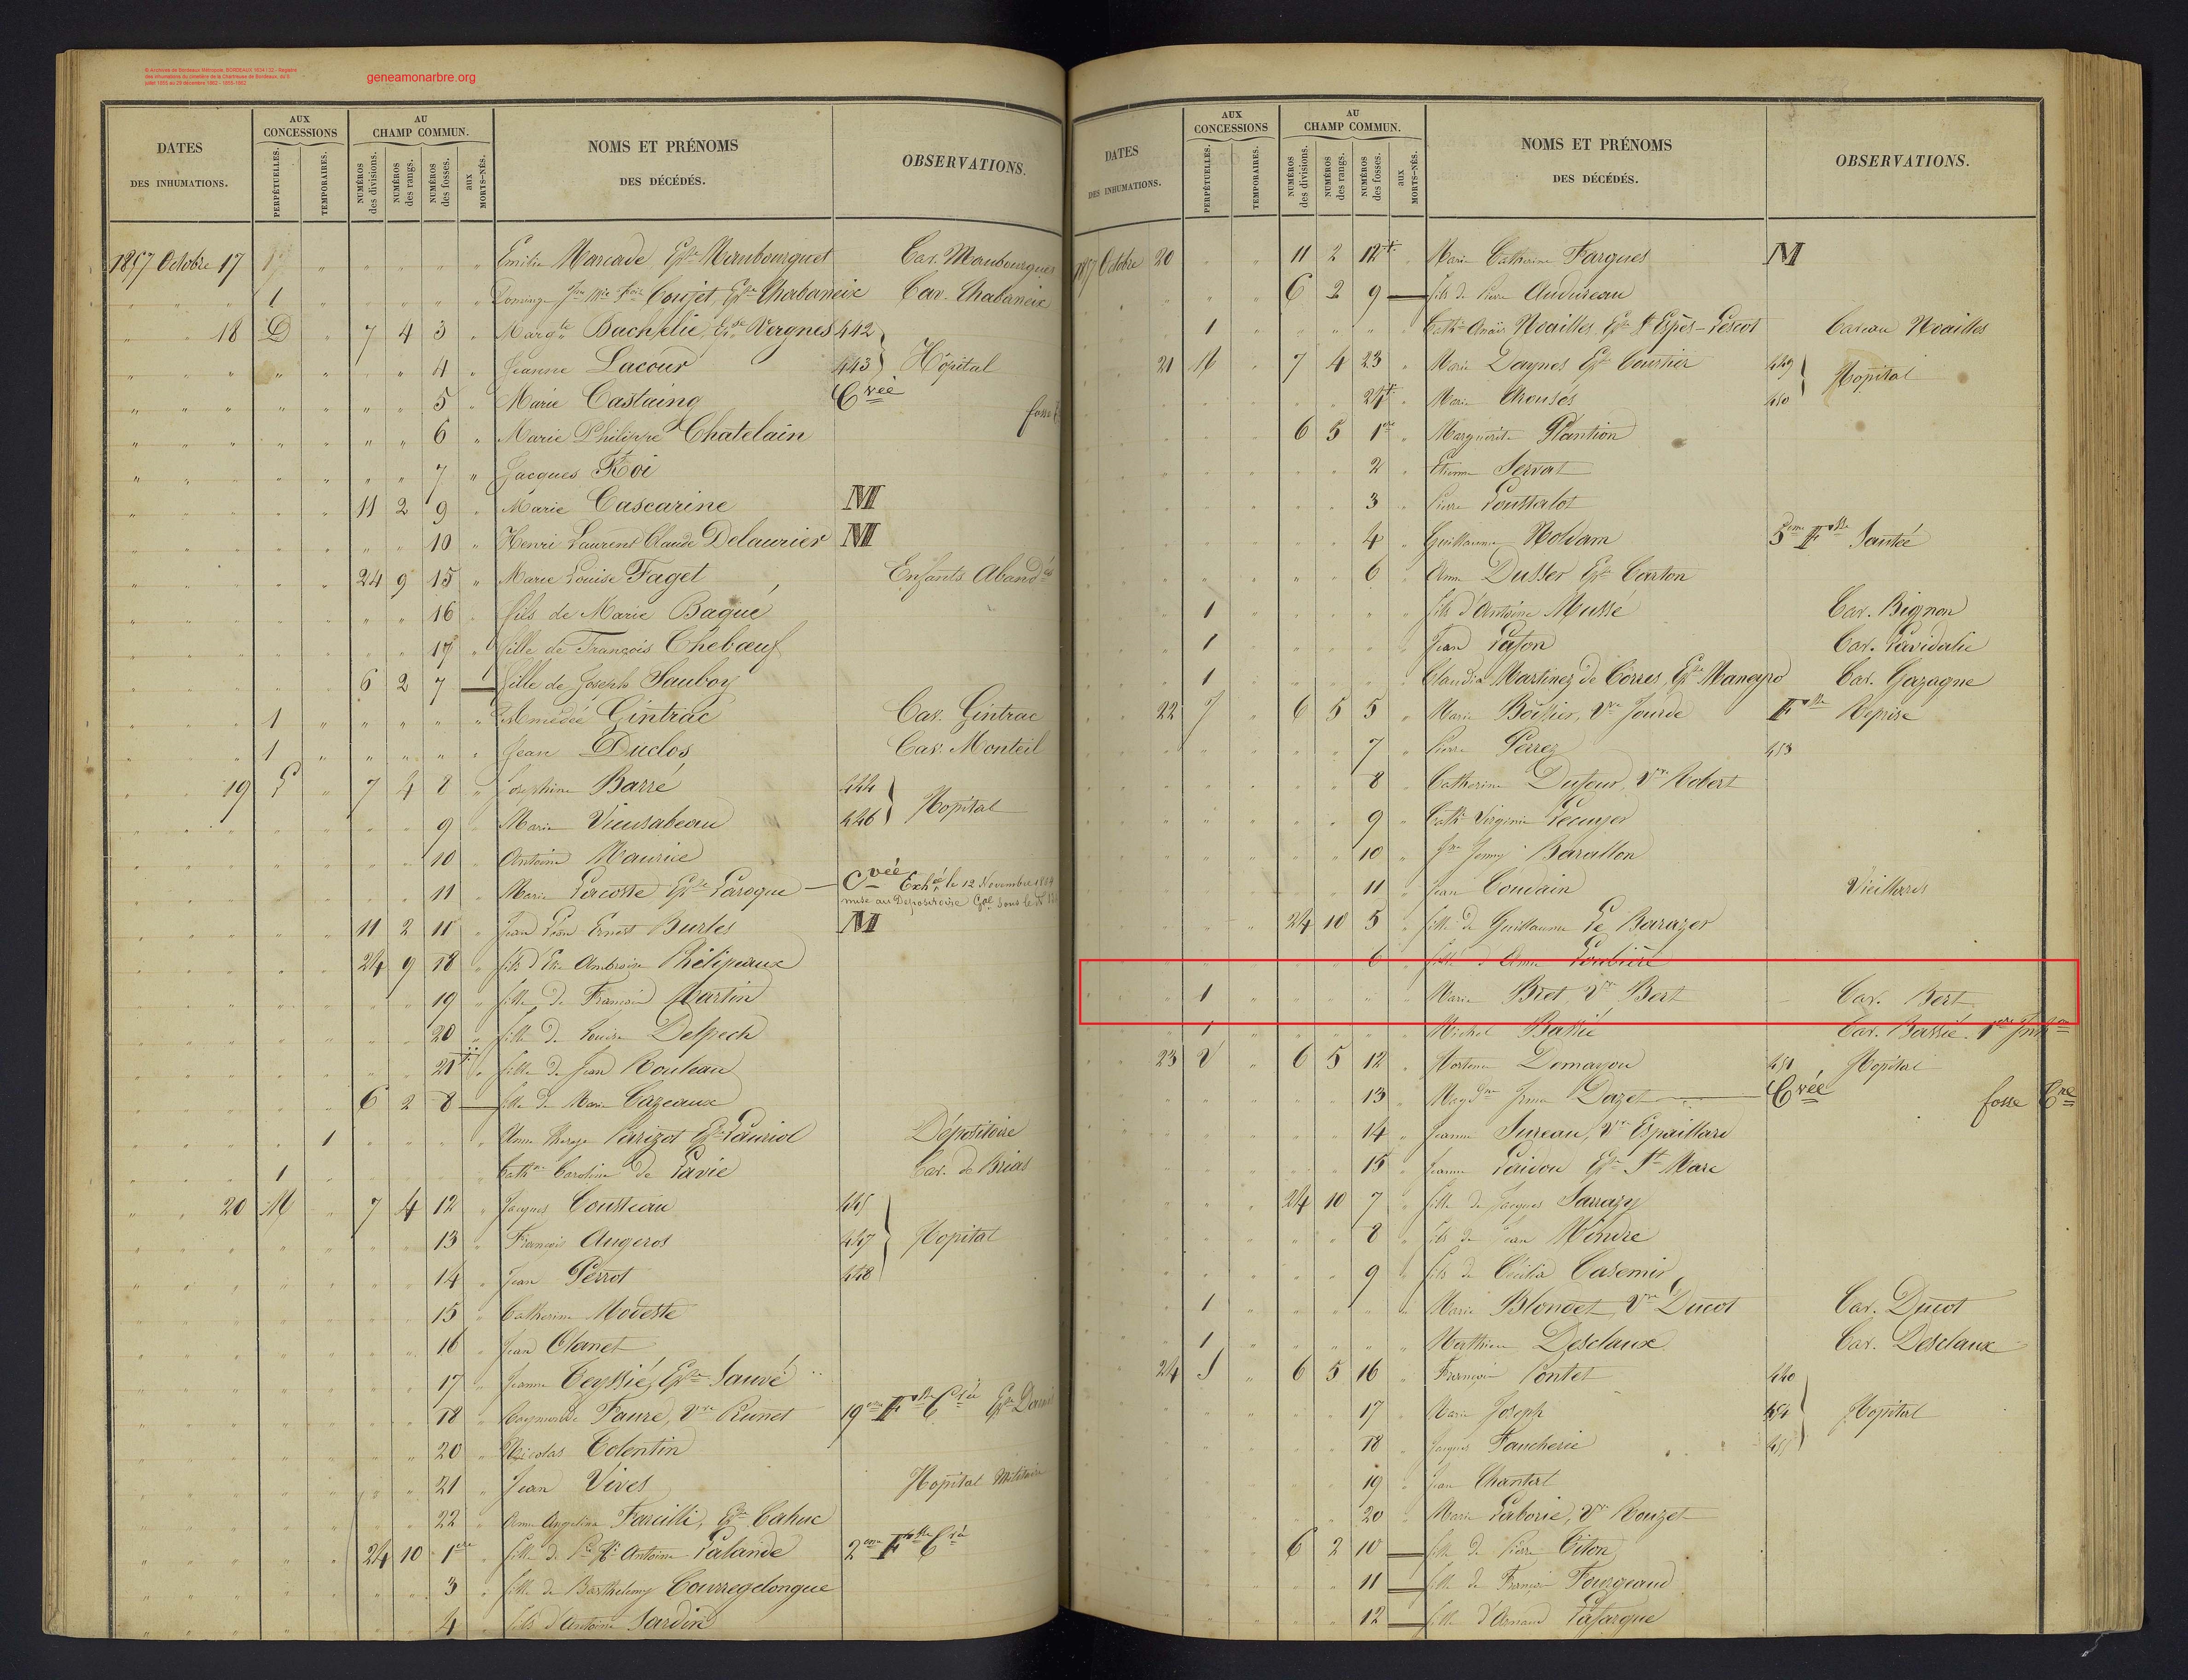 geneamonarbre.org
DATES DES INHUMATIONS.
AUX CONCESSIONS
PERPÉTUELLES.
TEMPORAIRES.
AU CHAMP COMMUN.
NUMÉROS des divisions.
NUMÉROS des rangs.
NUMÉROS des fosses.
aux MORTS-NÉS.
NOMS ET PRÉNOMS DES DÉCÉDÉS.
OBSERVATIONS.
1857 Octobre 17 Emilie Marcade, Epse Maubourguet Cav. Maubourguet
1 Coujet, Epse Chabaneix Cav. Chabaneix
18 D 7 4 3 Margte Bachelié, Epse Vergnes 442
4 Jeanne Lacour 443 Hôpital
5 Marie Castaing Cvée
6 Marie Philippe Chatelain
7 Jacques Roi
11 2 9 Marie Cascarine M
10 Henri Laurent Claude Delaurier M
24 9 15 Marie Louise Faget Enfants Aband
16 fils de Marie Bagué
17 fille de François Cheboeuf
6 2 7 fille de Joseph Sauboy
1 Amédée Gintrac Cav. Gintrac
1 Jean Duclos Cav. Monteil
19 L 7 4 8 Josephine Barré 444
9 Marie Vieusabeau 446 Hopital
10 Antoine Maurice
11 Marie Lacoste Epse Laroque Cvée Exhée le 12 Novembre
mise au Depositoire Gal sous le No
11 2 11 Jean Léon Ernest Burles M
24 9 18 fils d'Ete Ambroise Phélipeaux
19 fille de François Martin
20 fille de Louise Delpech
21 fille de Jean Rouleau
6 2 8 fille de Marie Cazeaux
1 Anna Thereze Parizot Epse Lauriol Dépositoire
1 Cathne Caroline de Lavie Cav. de Brias
20 M 7 4 12 Jacques Cousteau 445
13 François Augeros 447 Hopital
14 Jean Perrot 448
15 Catherine Modeste
16 Jean Clanet
17 Jeanne Teyssié, Epse Sauvé
18 Raymonde Faure, Vve Runet
20 Nicolas Colentin
21 Jean Vives Hopital Militaire
22 Anne Angelina Farcilli, Epse Cahuc
24 10 1ere fille de Antoine Lalande
3 fille de Barthelemy Courregelongue
4 fils d'Antoine Sardin
DATES DES INHUMATIONS.
AUX CONCESSIONS
PERPÉTUELLES.
TEMPORAIRES.
AU CHAMP COMMUN.
NUMÉROS des divisions.
NUMÉROS des rangs.
NUMÉROS des fosses.
aux MORTS-NÉS.
NOMS ET PRÉNOMS DES DÉCÉDÉS.
OBSERVATIONS.
1857 Octobre 20 11 2 12 Marie Catherine Fargues M
6 2 9 fils de Pierre Audureau
1 Cathe Anaïs Noailles, Epse Caveau Noailles
21 M 7 4 23 Marie Daynes Epse Courtier 449
24 Marie Chousés 450 Hopital
6 5 1ere Marguerite Plantion
2 Etienne Servat
3 Pierre Loustalot
4 Guillaume Noldam
6 Anne Dusser Epse Carton
1 fils d'Antoine Mussé Cav. Bignon
1 Jean Lafon Cav. Lavidalie
1 Claudia Martinez de Corres, Epse Maneyro Cav. Gazagne
22 J 6 5 5 Marie Boitier, Vve Jourde Reprise
7 Pierre Perrez 453
8 Catherine Dufour, Vve Robert
9 Cathe Virginie Lecuyer
10 Jne Jenny Baratton
11 Jean Coudain Vieillards
24 10 5 fille de Guillaume Le Barazer
6 fille d'Anne Loubière
1 Marie Bret, Vve Bert Cav. Bert
1 Michel Bassié Cav. Bassié
23 V 6 5 12 Hortense Domayou 451 Hopital
13 Magdne Irma Dazet Cvée fosse Cne
14 Jeanne Sureau, Vve Espaillard
15 Jeanne Laidou Epse St Marc
24 10 7 fille de Jacques Sarrazy
8 fils de Jean Windre
9 fils de Cécilia Casemis
1 Marie Blondet, Vve Ducot Cav. Ducot
1 Mathieu Desclaux Cav. Desclaux
24 S 6 5 16 François Pontet 440
17 Marie Joseph 454 Hopital
18 Jacques Faucherie 455
19 Jean Chantal
20 Marie Laborie, Vve Rouzet
6 2 10 fille de Pierre Titon
11 fille de François Fourgeaud
12 fille d'Arnaud Lafargue